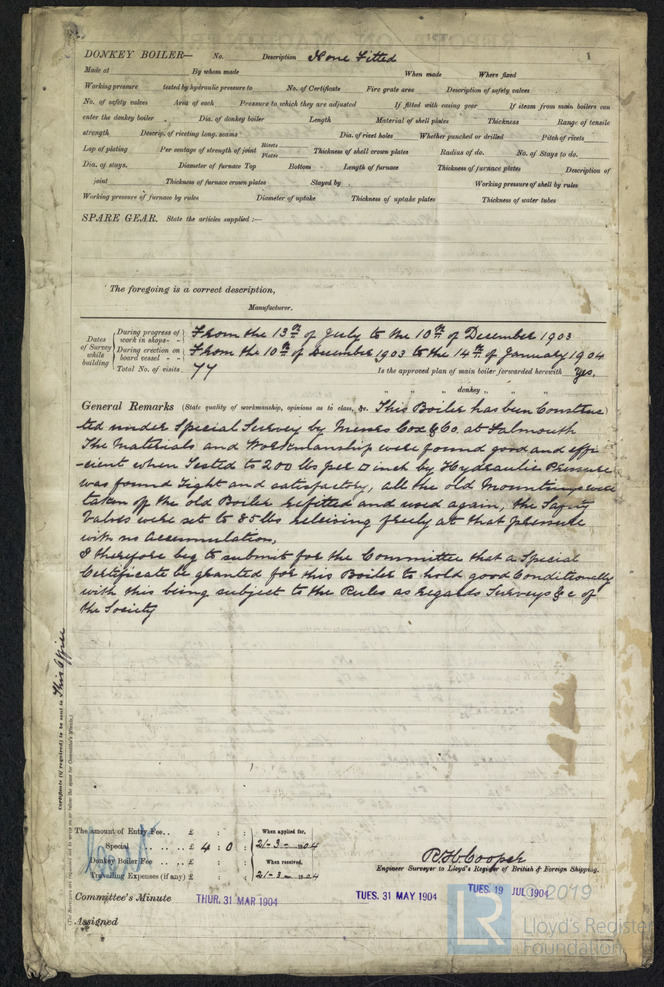 DONKEY BOILER— No. Description None Fitted 1
Made at By whom made When made Where fixed
Working pressure tested by hydraulic pressure to No. of Certificate Fire grate area Description of safety valves
No. of safety valves Area of each Pressure to which they are adjusted If fitted with easing gear If steam from main boilers can
enter the donkey boiler Dia. of donkey boiler Length Material of shell plates Thickness Range of tensile
strength Descrip. of riveting long. seams Dia. of rivet holes Whether punched or drilled Pitch of rivets
Lap of plating Per centage of strength of joint Rivets Plates Thickness of shell crown plates Radius of do. No. of Stays to do.
Dia. of stays. Diameter of furnace Top Bottom Length of furnace Thickness of furnace plates Description of
joint Thickness of furnace crown plates Stayed by Working pressure of shell by rules
Working pressure of furnace by rules Diameter of uptake Thickness of uptake plates Thickness of water tubes
SPARE GEAR. State the articles supplied :—
The foregoing is a correct description,
Manufacturer.
Dates of Survey while building
During progress of work in shops - - From the 13th of July to the 10th of December 1903
During erection on board vessel - - From the 10th of December 1903 to the 14th of January 1904
Total No. of visits 77 Is the approved plan of main boiler forwarded herewith Yes.
" " " donkey " "
General Remarks (State quality of workmanship, opinions as to class, &c. This Boiler has been Construc
ted under Special Survey by Messrs Cox & Co. at Falmouth
The Materials and Workmanship were found good and effi
-cient when Tested to 200 lbs per □ inch by Hydraulic Pressure
was found Tight and satisfactory, all the old Mountings were
taken off the old Boiler refitted and used again, the Safety
Valves were set to 85 lbs relieving freely at that pressure
with no accumulation,
I therefore beg to submit for the Committee that a Special
Certificate be granted for this Boiler to hold good Conditionally
with this being subject to the Rules as regards Surveys &c of
the Society
Certificate (if required) to be sent to This Office
The amount of Entry Fee . . £ : : When applied for,
Special . . . . £ 4 : 0 : 21-3-1904
Donkey Boiler Fee . . . £ : : When received,
Travelling Expenses (if any) £ : : 21-3-1904
R H Cooper
Engineer Surveyor to Lloyd's Register of British & Foreign Shipping.
Committee's Minute THUR. 31 MAR 1904 TUES. 31 MAY 1904 TUES. 19 JUL 1904
Assigned
© 2019
LR
Lloyd's Register
Foundation